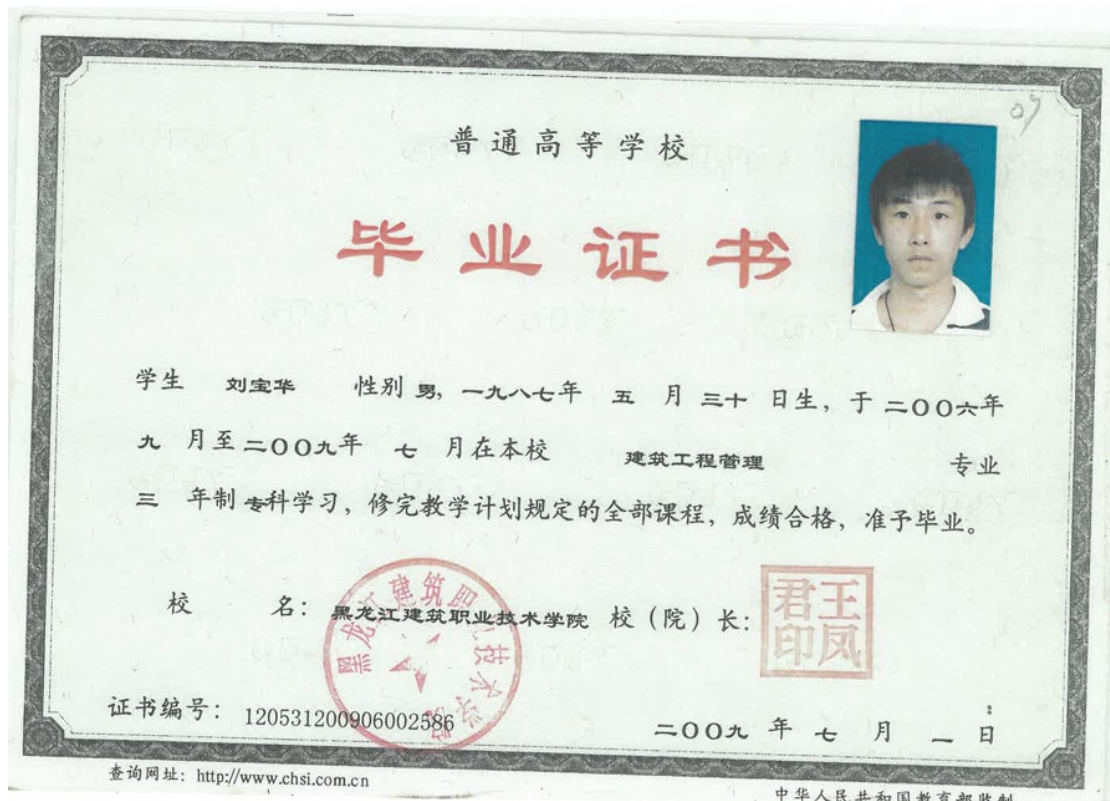 07
普通高等学校
毕业证书
学生 刘宝华 性别 男, 一九八七年 五 月 三十 日生, 于 二〇〇六年
九 月至 二〇〇九年 七 月在本校 建筑工程管理 专业
三 年制 专科学习, 修完教学计划规定的全部课程, 成绩合格, 准予毕业。
校 名: 黑龙江建筑职业技术学院 校(院)长:
王凤君印
黑龙江建筑职业技术学院
证书编号: 120531200906002586
二〇〇九 年 七 月 一 日
查询网址: http://www.chsi.com.cn
中华人民共和国教育部监制